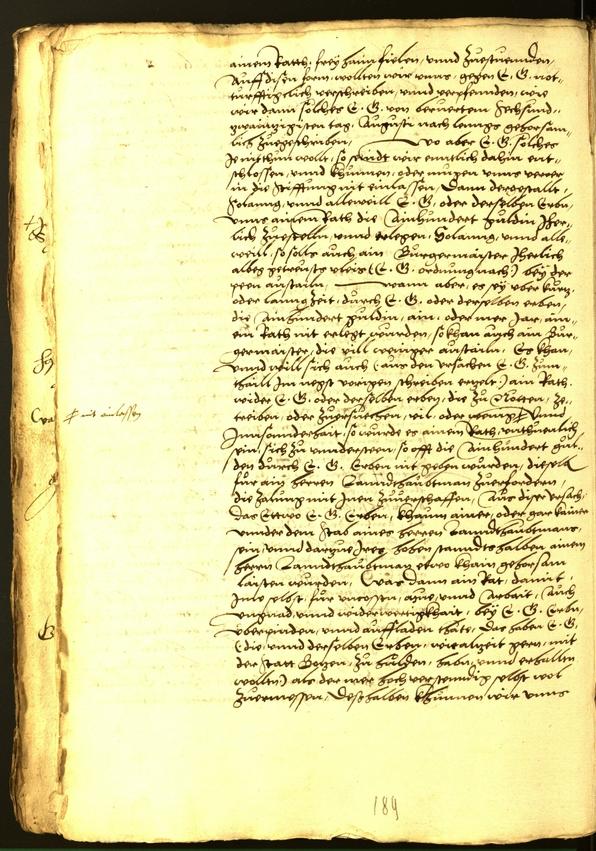 ainem Rath, frey haim fielen, vnnd Zuestuenden,
Auff disen form, wollten wir vnns, gegen E. G. not-
turfftigclich verschreiben, vnnd verpfenden, wie
wir dann solches E. G. von berurtem Sechsund-
zwainzigisten tag, Augusti nach lenngs gehorsam-
lich Zuegeschriben, wo aber E. G. solches
Je nit thun wollt, so sindt wir enntlich dahin ent-
schlossen, vnnd khunnen, oder mugen vnns verrer
in die Stifftung nit einlassen, Dann dergestallt,
Solanng, vnnd allerweill E. G. oder derselben Erbn,
vnns ainem Rath die Ainhundert guldin Jher-
lich Zuestelln, vnnd erlegen, Solanng, vnnd alle-
weill, so soll auch ain Burgermaister Jherlich
albeg getreusts vleis (E. G. ordnung nach) bey der
peen austailn, wann aber, es sey vber kurz,
oder lanng Zeit, durch E. G. oder derselben erben,
die Ainhundert guldin, ain, oder mer Jar, ain-
em Rath nit erlegt wurden, so khan auch ain Bur-
germaister, die vill weniger austailn, Es khan,
vnnd will sich auch (aus den vrsachen E. G. Zum
thaill Im negst vorigen schreiben erzelt) ain Rath
wider E. G. oder derselben erben, die Zu Nötten, Ze-
treiben, oder Zuersuechen, vil, oder wenig vnnd
Innsonderhait, so wurde es ainem Rath, vnthuenlich
sein, sich Zu vndersteen, so offt die Ainhundert gul-
den durch E. G. Erben nit geben wurden, dieselb
fur ain herren Lanndtshaubtman Zuerfordern,
die Zalung mit Inen Zuuerschaffen, Aus diser vrsach,
das Ettwo E. G. Erben, khaum ainer, oder gar kainer
vnnder dem Stab aines herren Lanndtshaubtmans,
sein, vnnd darzue Jres hohen stanndts halben ainem
herrn Lanndtshaubtman etwo khain gehorsam
laisten wurden, Was dann ain Rat, damit,
Jme selbst, fur vncossten, mue, vnnd Arbait, Auch
vngnad, vnnd widerwertigkhait, bey E. G. Erbn,
vberginden, vnnd auffladen thäte, Das haben E. G.
(die, vnnd derselben Erben, wir alzeit gern, mit
der Statt Bozen, Zu hulden, habn, vnnd erhallten
wollten) als der mer hoch verstenndig selbst wol
Zuermessen, Deshalben khunnen wir vnns
nit einlassen
189